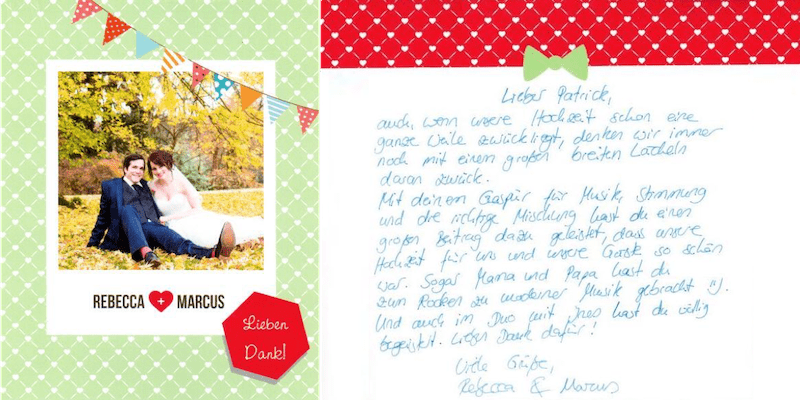 REBECCA + MARCUS
Lieben
Dank!
Lieber Patrick,
auch, wenn unsere Hochzeit schon eine
ganze Weile zurückliegt, denken wir immer
noch mit einem großen breiten Lächeln
daran zurück.
Mit deinem Gaspür für Musik, Stimmung
und die richtige Mischung hast du einen
großen Beitrag dazu geleistet, dass unsere
Hochzeit für uns und unsere Gäste so schön
war. Sogar Mama und Papa hast du
zum Rocken zu moderner Musik gebracht !!).
Und auch im Duo mit Ines hast du völlig
begeistert. Lieben Dank dafür!
Viele Grüße,
Rebecca & Marcus